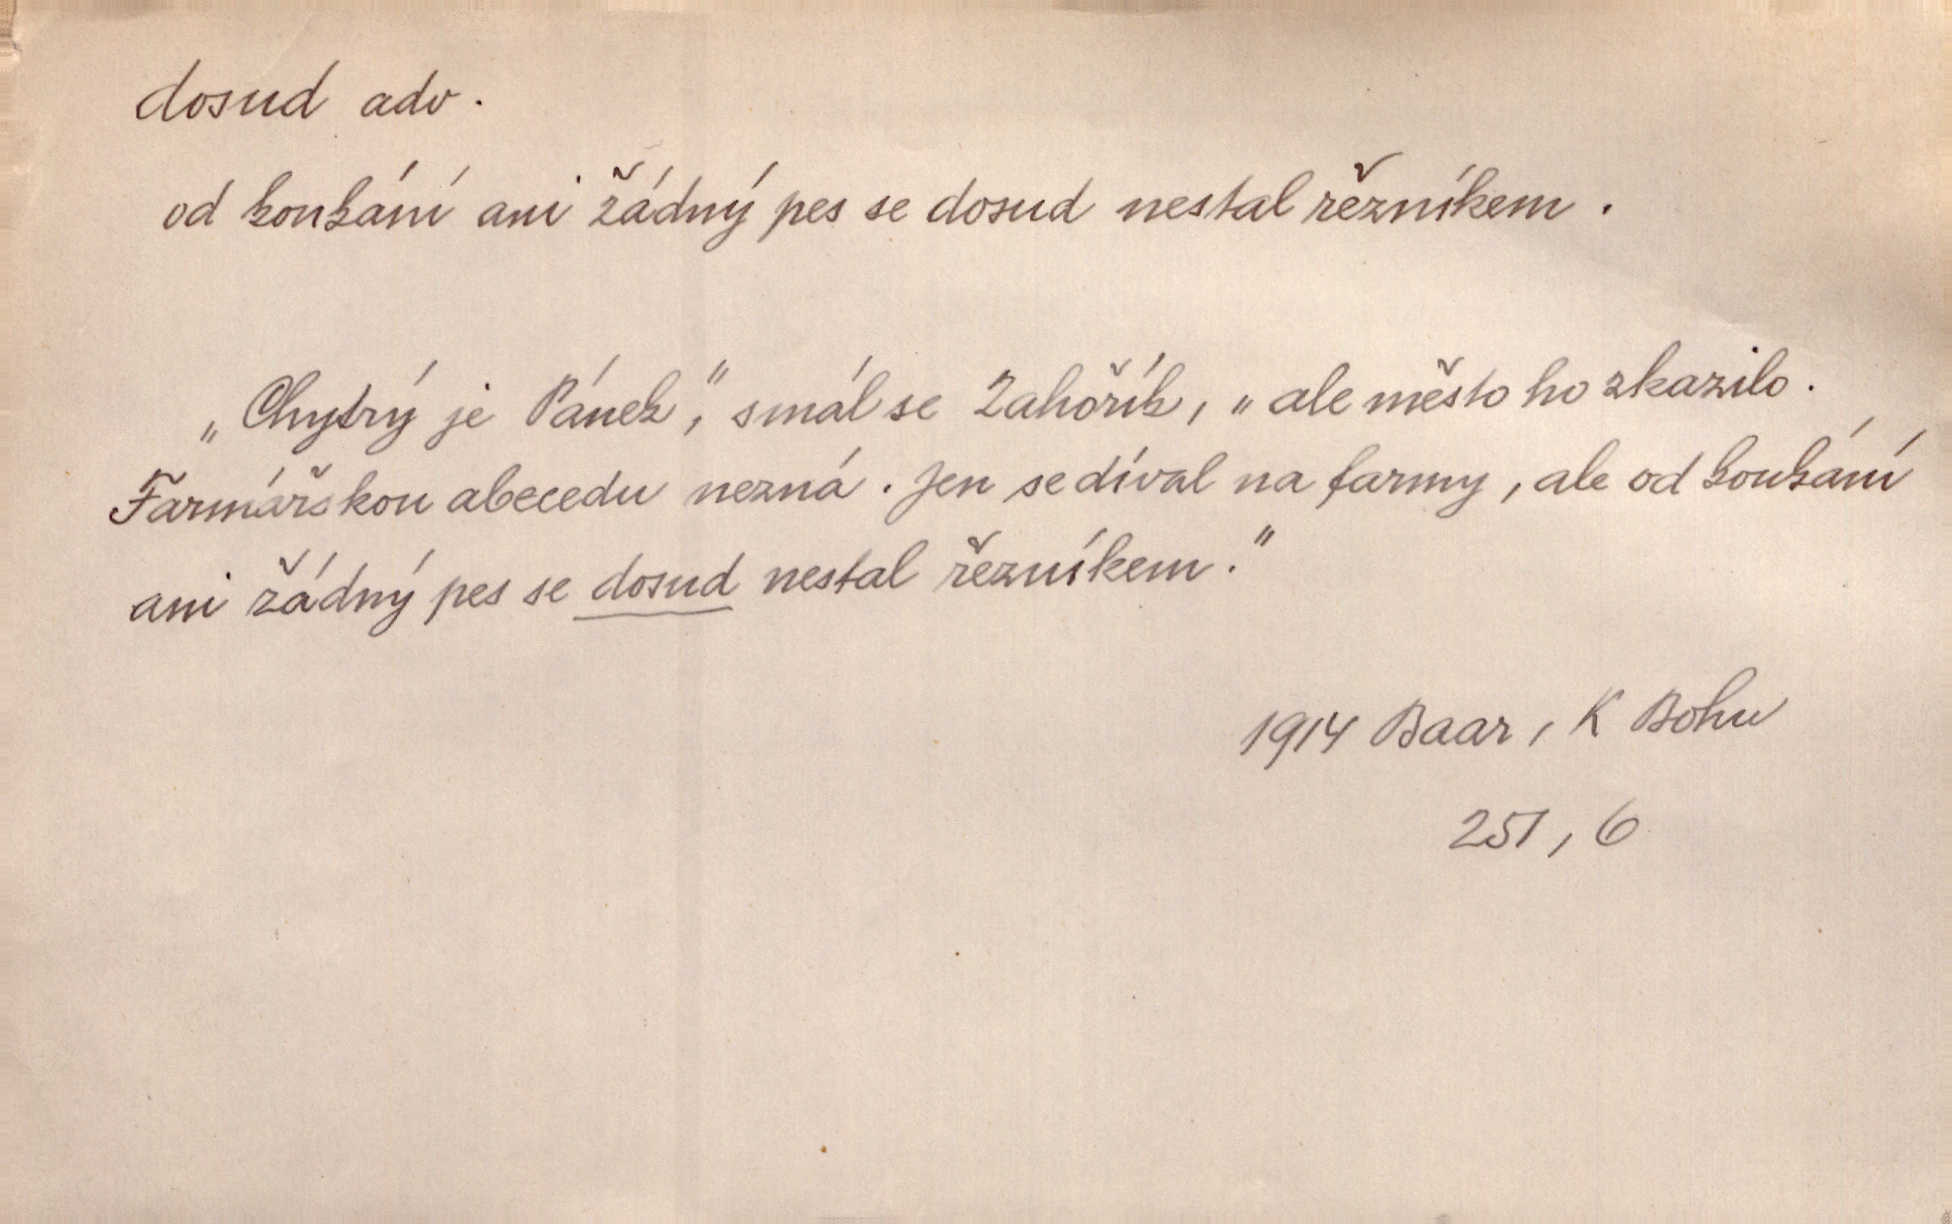 dosud adv.
od koukání ani žádný pes se dosud nestal řezníkem.
„Chytrý je Pánek," smál se Zahořík, „ale město ho zkazilo.
Farmářskou abecedu nezná. Jen se díval na farmy, ale od koukání
ani žádný pes se dosud nestal řezníkem."
1914 Baar, K Bohu
251, 6